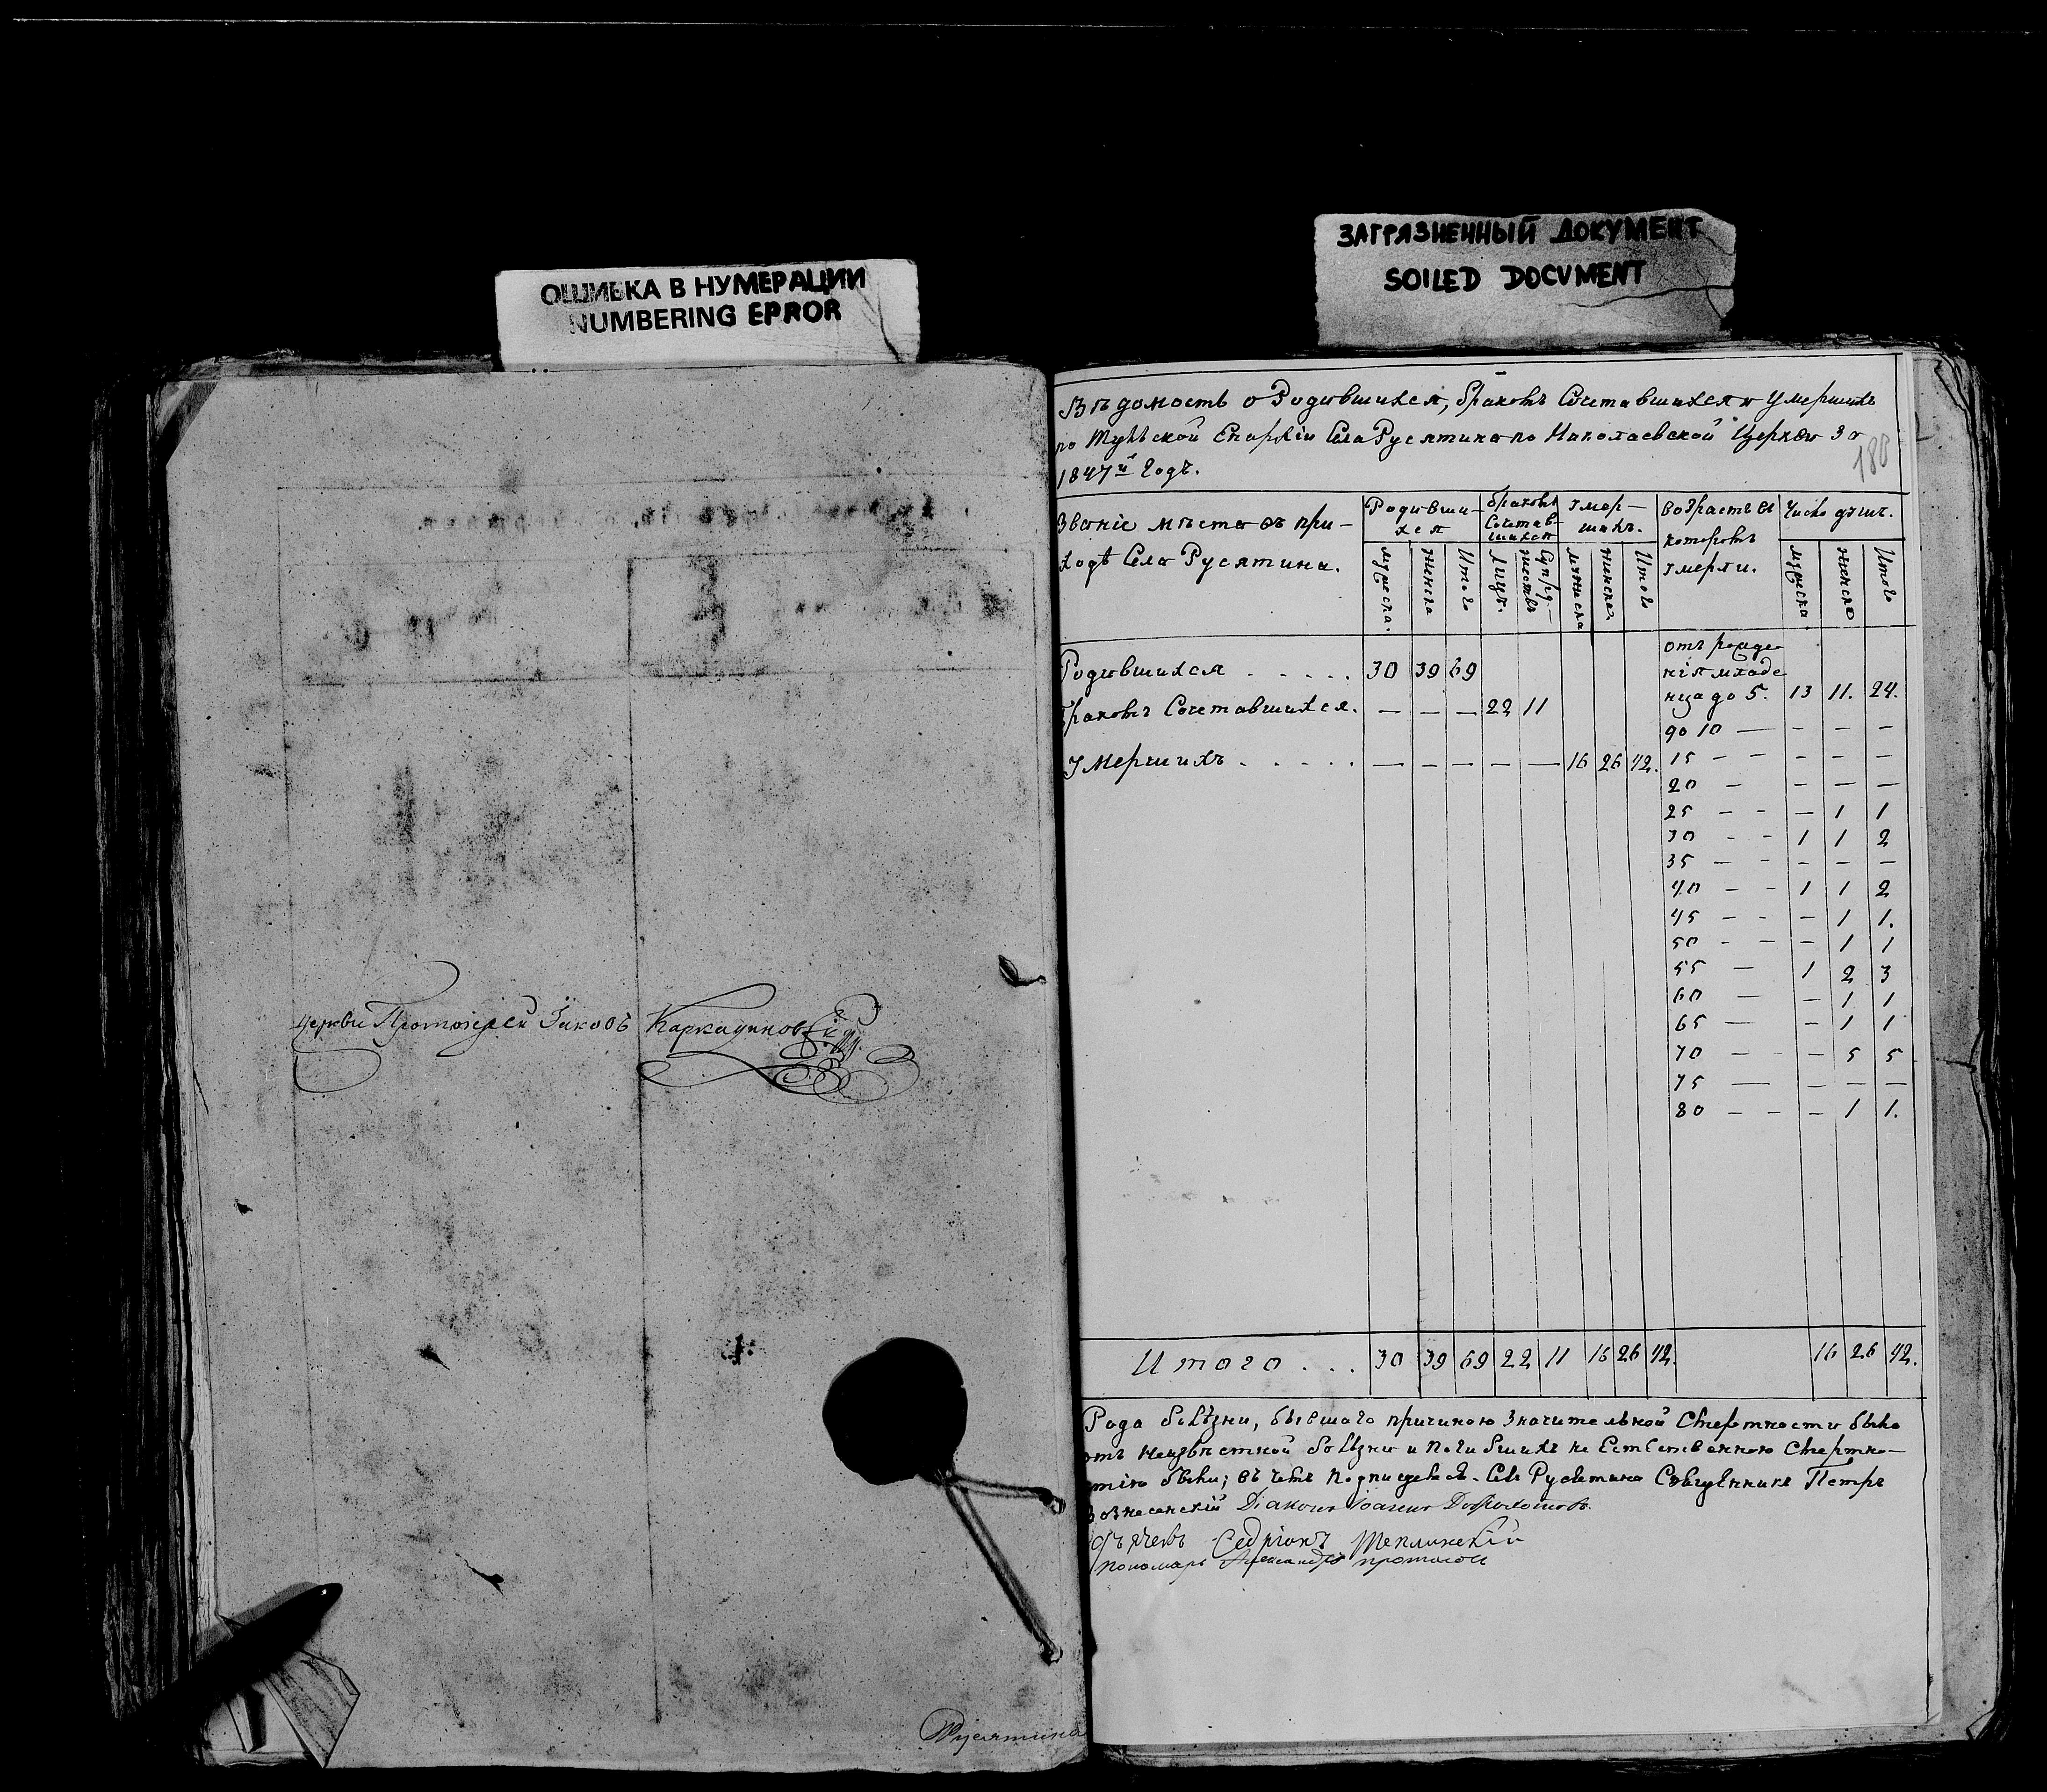 ОШИБКА В НУМЕРАЦИИ
NUMBERING ERROR
ЗАГРЯЗНЕННЫЙ ДОКУМЕНТ
SOILED DOCUMENT
церкви Протоіерей Іаковъ
Русятина
Вѣдомость о Родившихся, браковъ Сочетавшихся и Умершихъ
по Тульской Епархіи Села Русятина по Николаевской Церкви за
180
1847й Годъ.
Званіе мѣста въ при-
ходѣ Села Русятина.
Родивши-
хся
браковъ
Сочетав-
шихся
Умер-
шихъ.
возрастъ въ
которомъ
умерли.
Число душъ.
мужеска.
женска
Итого
Лицъ.
Супру-
жествъ
мужеска
женска
Итого
мужеска.
женско
Итого
Родившихся . . . . . 30 39 69
браковъ Сочетавшихся. — — — 22 11
Умершихъ . . . . . — — — — — 16 26 42.
отъ рожде
нія младе
нца до 5. 13 11. 24.
до 10 — - - -
15 - - - - -
20 - - - -
25 - - - 1 1
30 - - 1 1 2
35 - - - - -
40 - - 1 1 2
45 - - - 1 1.
50 - - - 1 1
55 — 1 2 3
60 — - 1 1
65 — - 1 1
70 — - 5 5
75 — - - -
80 - - - 1 1.
Итого . . . 30 39 69 22 11 16 26 42. 16 26 42.
Рода болѣзни, бывшаго причиною значительной Смертности было
отъ Неизвѣстной болѣзни и погибшихъ не Естественною Смертно-
стію были; въ чемъ подписуемся. Села Русятина Священникъ Петръ
Вознесенскій Діаконъ Іоаннъ
Дьячекъ
пономарь Александръ